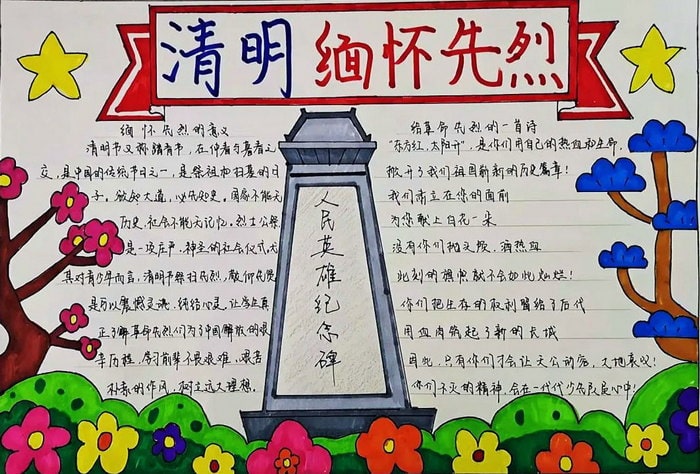 清明 缅怀先烈
缅怀先烈的意义
清明节又称踏青节，在仲春与暮春之
交，是中国的传统节日之一，是祭祖和扫墓的日
子。欲知大道，必先知史。国家不能无
历史，社会不能无记忆。烈士公祭
是一项庄严、神圣的社会仪式，尤
其对青少年而言，清明节祭扫先烈，敬仰先贤
是可以震撼灵魂，纯洁心灵，让学生真
正了解革命先烈们为了中国解放的艰
辛历程，学习前辈不畏艰难、艰苦
朴素的作风，树立远大理想。
人民英雄纪念碑
给革命先烈的一首诗
"东方红，太阳升"，是你们用自己的热血和生命，
掀开了我们祖国崭新的历史篇章！
我们肃立在你的面前
为您献上白花一朵
没有你们抛头颅，洒热血
此刻的旗帜就不会如此灿烂！
你们把生存的权利留给了后代
用血肉筑起了新的长城
因此，只有你们才会让天公动容，大地哀泣！
你们不灭的精神，会在一代代少先队员心中！